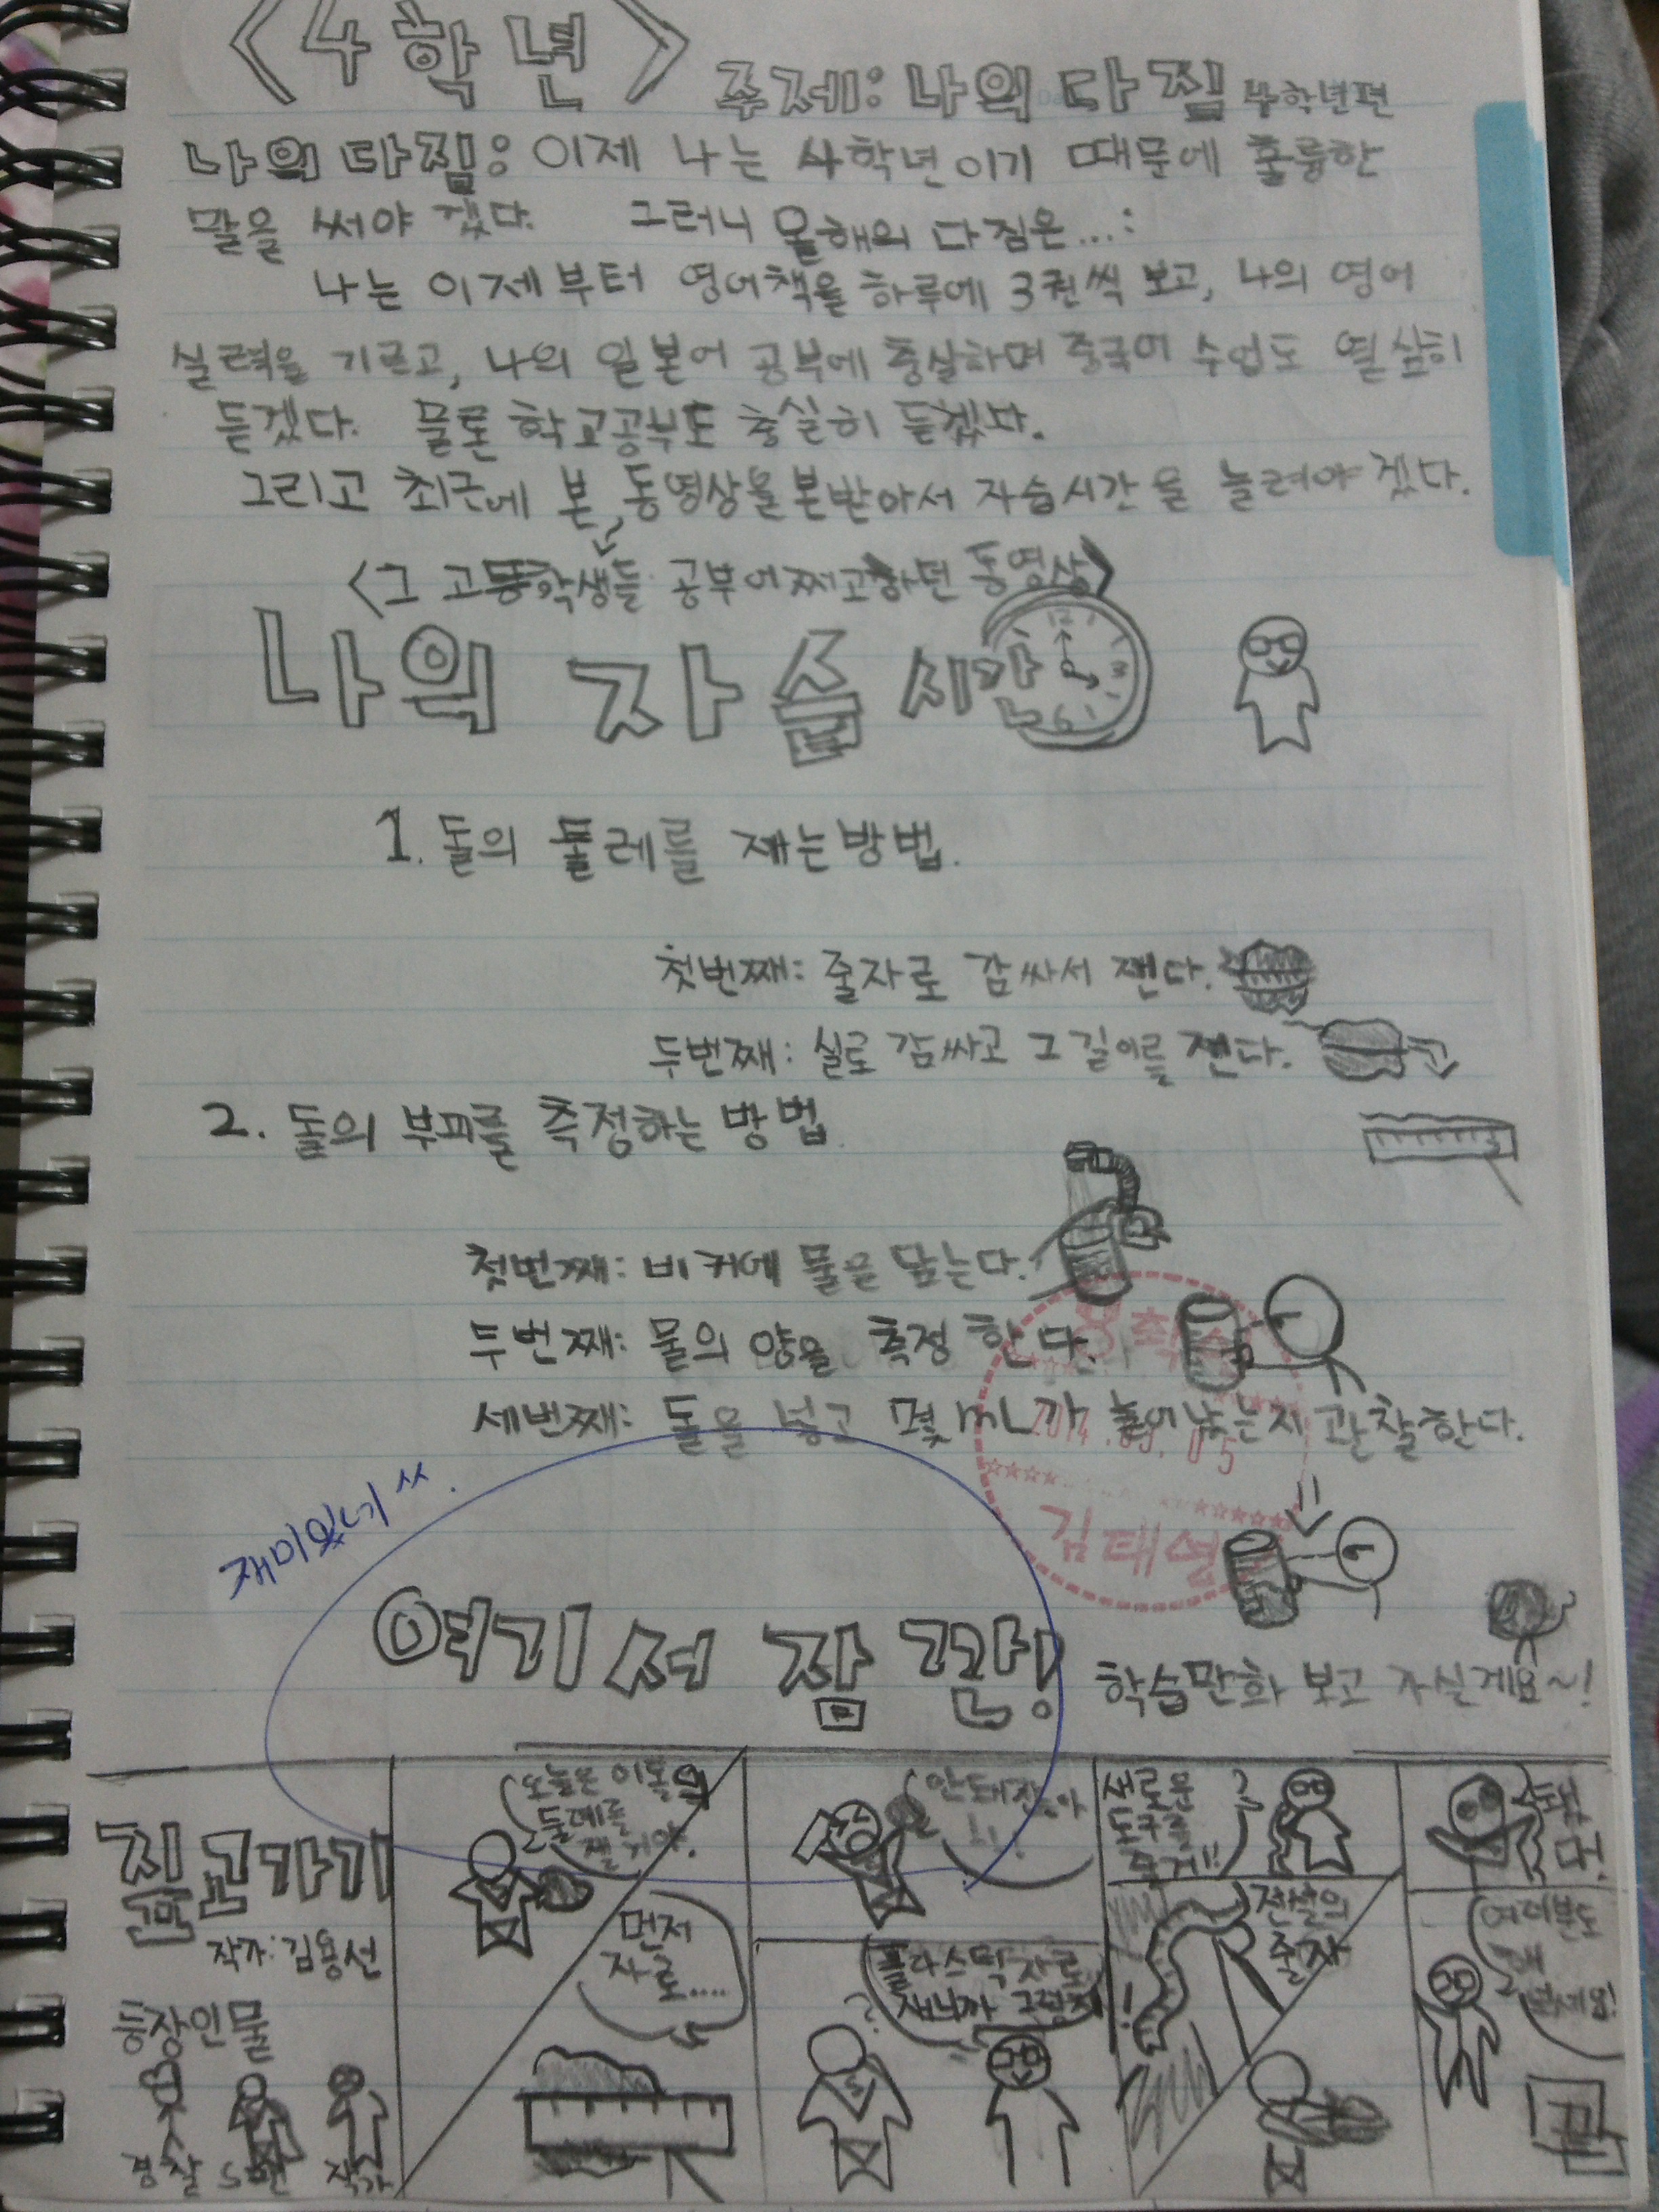 <4학년>
주제: 나의 다짐 4학년편
나의 다짐: 이제 나는 4학년이기 때문에 훌륭한
말을 써야 겠다. 그러니 올해의 다짐은...:
나는 이제부터 영어책을 하루에 3권씩 보고, 나의 영어
실력을 기르고, 나의 일본어 공부에 충실하며 중국어 수업도 열심히
듣겠다. 물론 학교공부도 충실히 듣겠다.
그리고 최근에 본 동영상을 본받아서 자습시간을 늘려야 겠다.
<그 고등학생들 공부어쩌고하던 동영상>
나의 자습시간
1. 돌의 둘레를 재는 방법.
첫번째: 줄자로 감싸서 잰다.
두번째: 실로 감싸고 그 길이를 잰다.
2. 돌의 부피를 측정하는 방법.
첫번째: 비커에 물을 담는다.
두번째: 물의 양을 측정 한다.
세번째: 돌을 넣고 몇 mL가 늘어났는지 관찰한다.
2014.03.05
김태열
재미있네 ^^.
여기서 잠깐!
학습만화 보고 가실게요~!
집고가기
작가: 김용선
등장인물
경찰 S맨 작가
오늘은 이돌의
둘레를
잴거야.
먼저
자로....
안돼잖아
!!
플라스틱 자로
재니까 그렇지!
?
새로운
도구를
줄게!!
전설의
줄자
!
됐
다!
여러분도
해
보세요!
끝